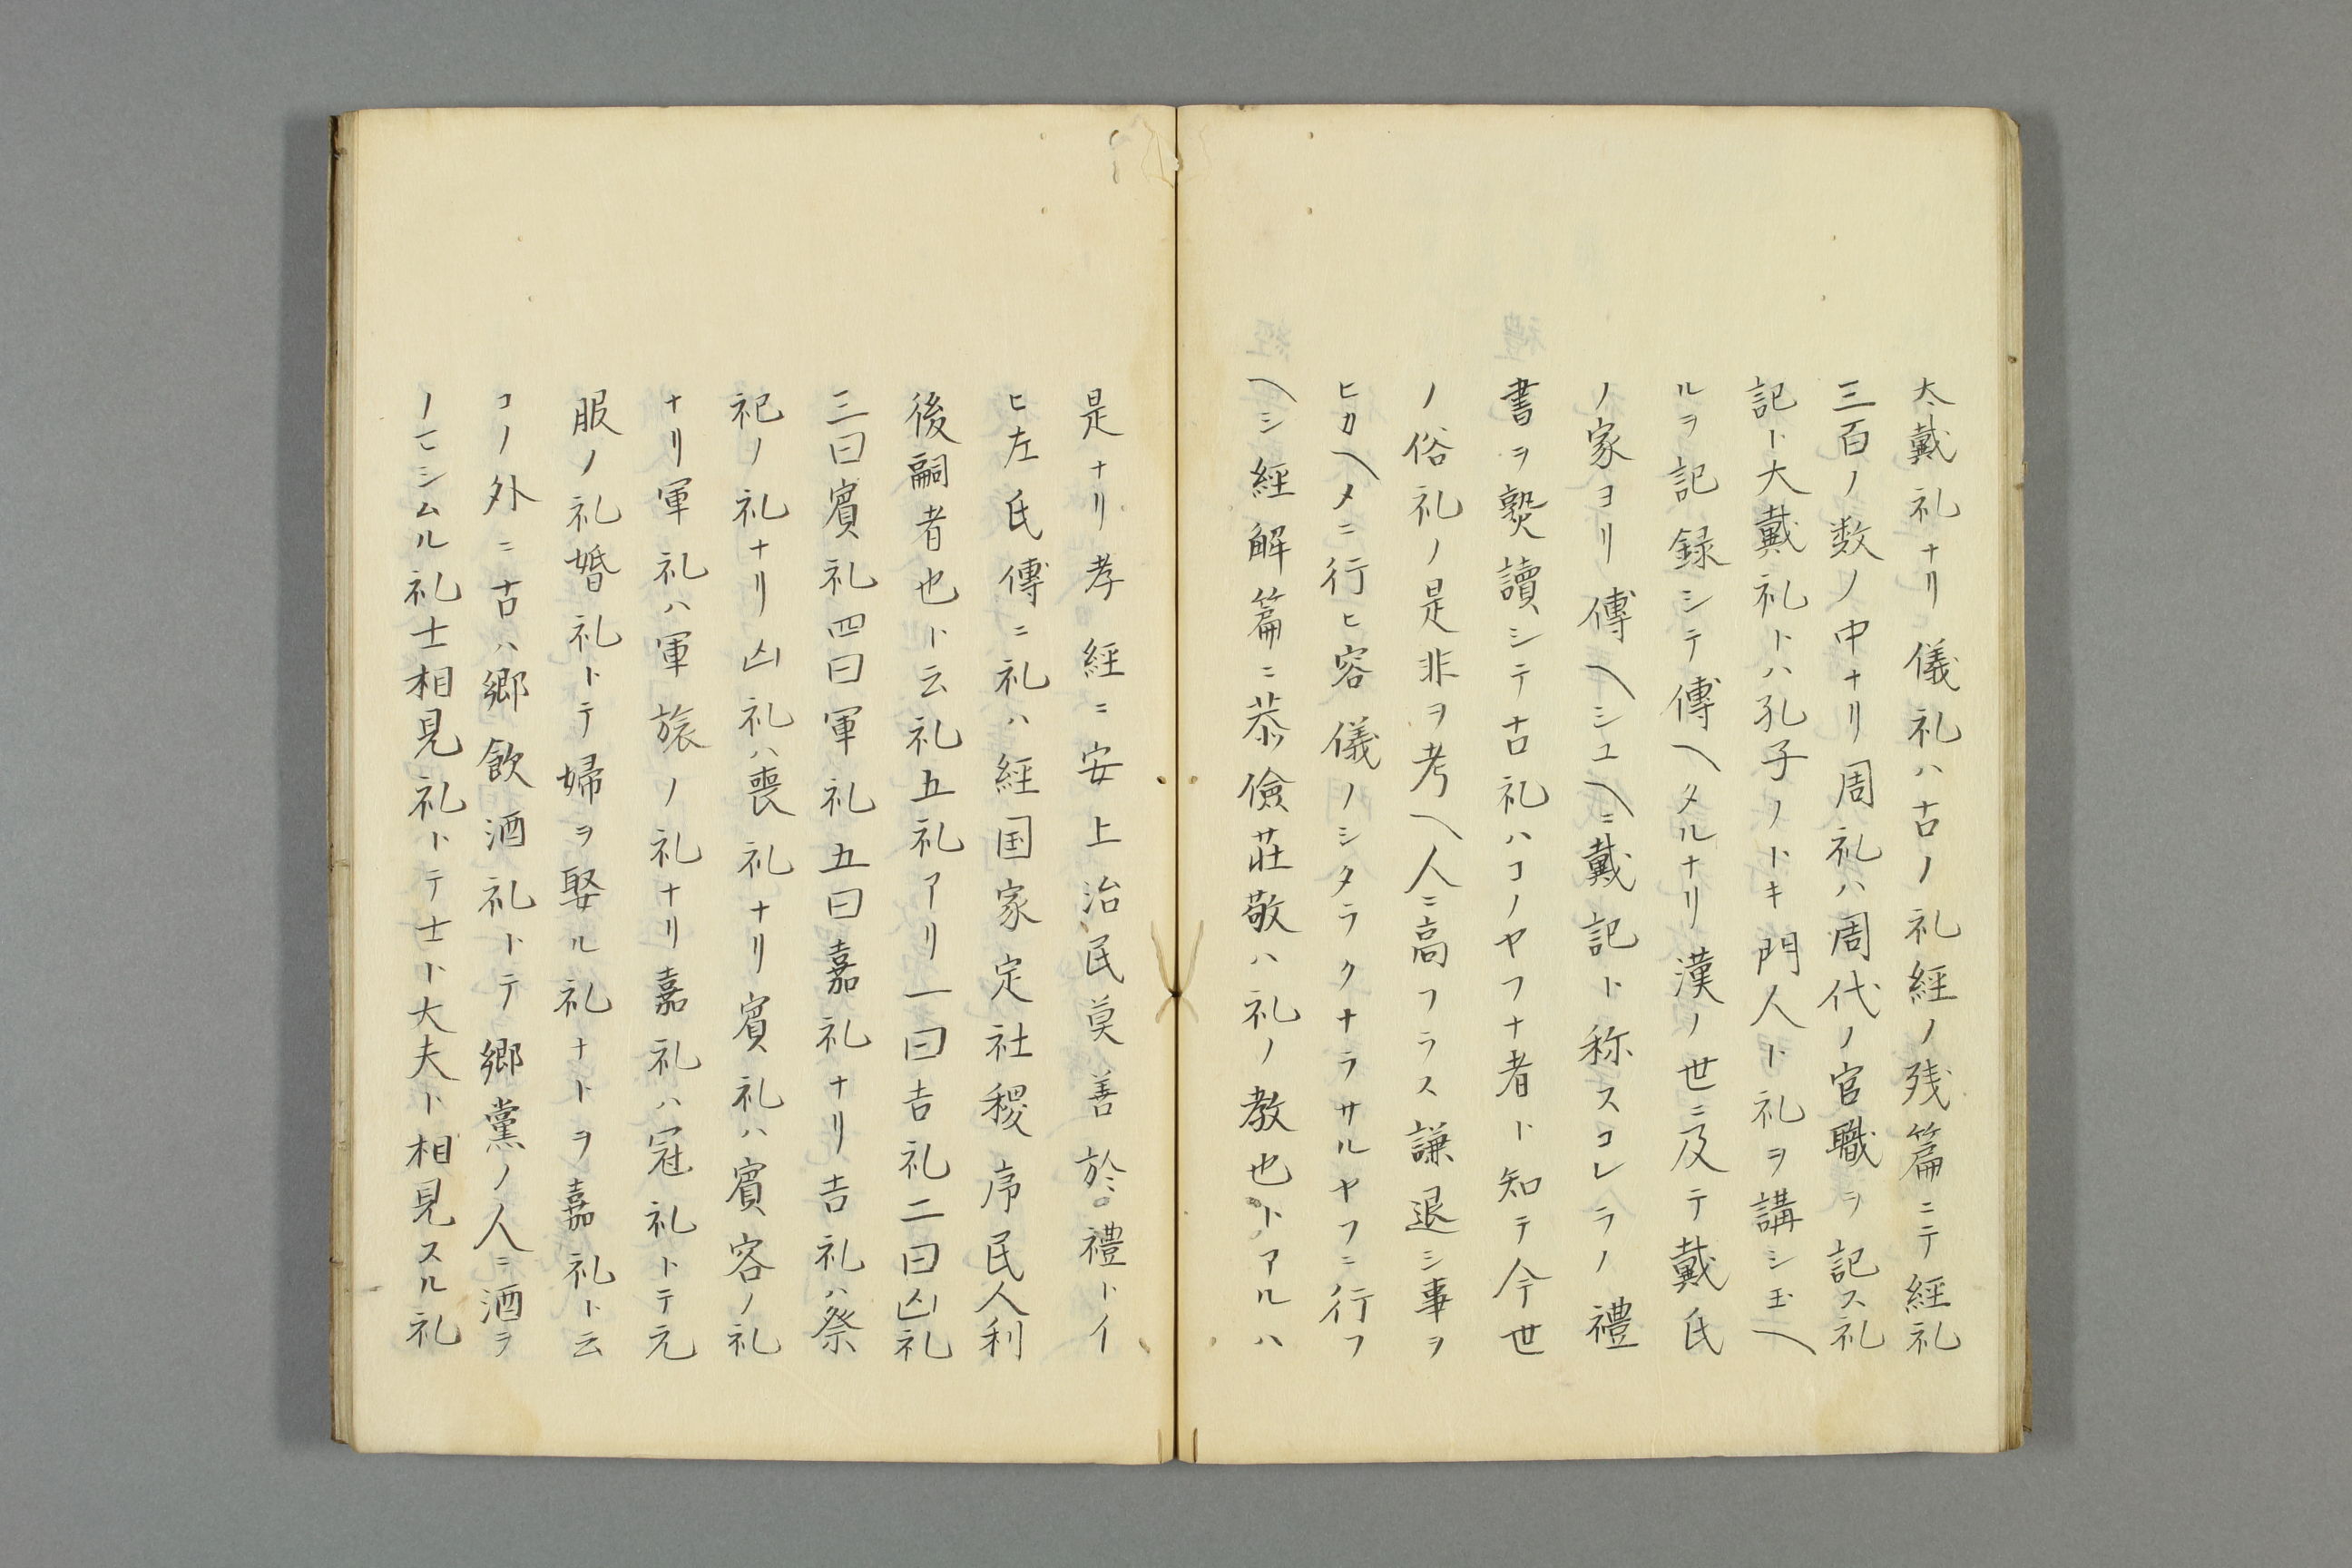 大戴礼ナリ儀礼ハ古ノ礼経ノ残篇ニテ経礼
三百ノ数ノ中ナリ周礼ハ周代ノ官職ヲ記ス礼
記ト大戴礼トハ孔子ノトキ門人ト礼ヲ講シ玉ヘ
ルヲ記録シテ傳ヘタルナリ漢ノ世ニ及テ戴氏
ノ家ヨリ傳ヘシユヘニ戴記ト称スコレラノ禮
書ヲ熟讀シテ古礼ハコノヤフナ者ト知テ今世
ノ俗礼ノ是非ヲ考ヘ人ニ高フラス謙退シ事ヲ
ヒカヘメニ行ヒ容儀ノシタラクナラサルヤフニ行フ
ヘシ經解篇ニ恭儉荘敬ハ礼ノ教也トアルハ
是ナリ孝經ニ安上治民莫善於禮トイ
ヒ左氏傳ニ礼ハ經国家定社稷序民人利
後嗣者也ト云礼五礼アリ一曰吉礼二曰凶礼
三曰賓礼四曰軍礼五曰嘉礼ナリ吉礼ハ祭
祀ノ礼ナリ凶礼ハ喪礼ナリ賓礼ハ賓客ノ礼
ナリ軍礼ハ軍旅ノ礼ナリ嘉礼ハ冠礼トテ元
服ノ礼婚礼トテ婦ヲ娶ル礼ナトヲ嘉礼ト云
コノ外ニ古ハ郷飲酒礼トテ郷黨ノ人ニ酒ヲ
ノマシムル礼士相見礼トテ士ト大夫ト相見スル礼